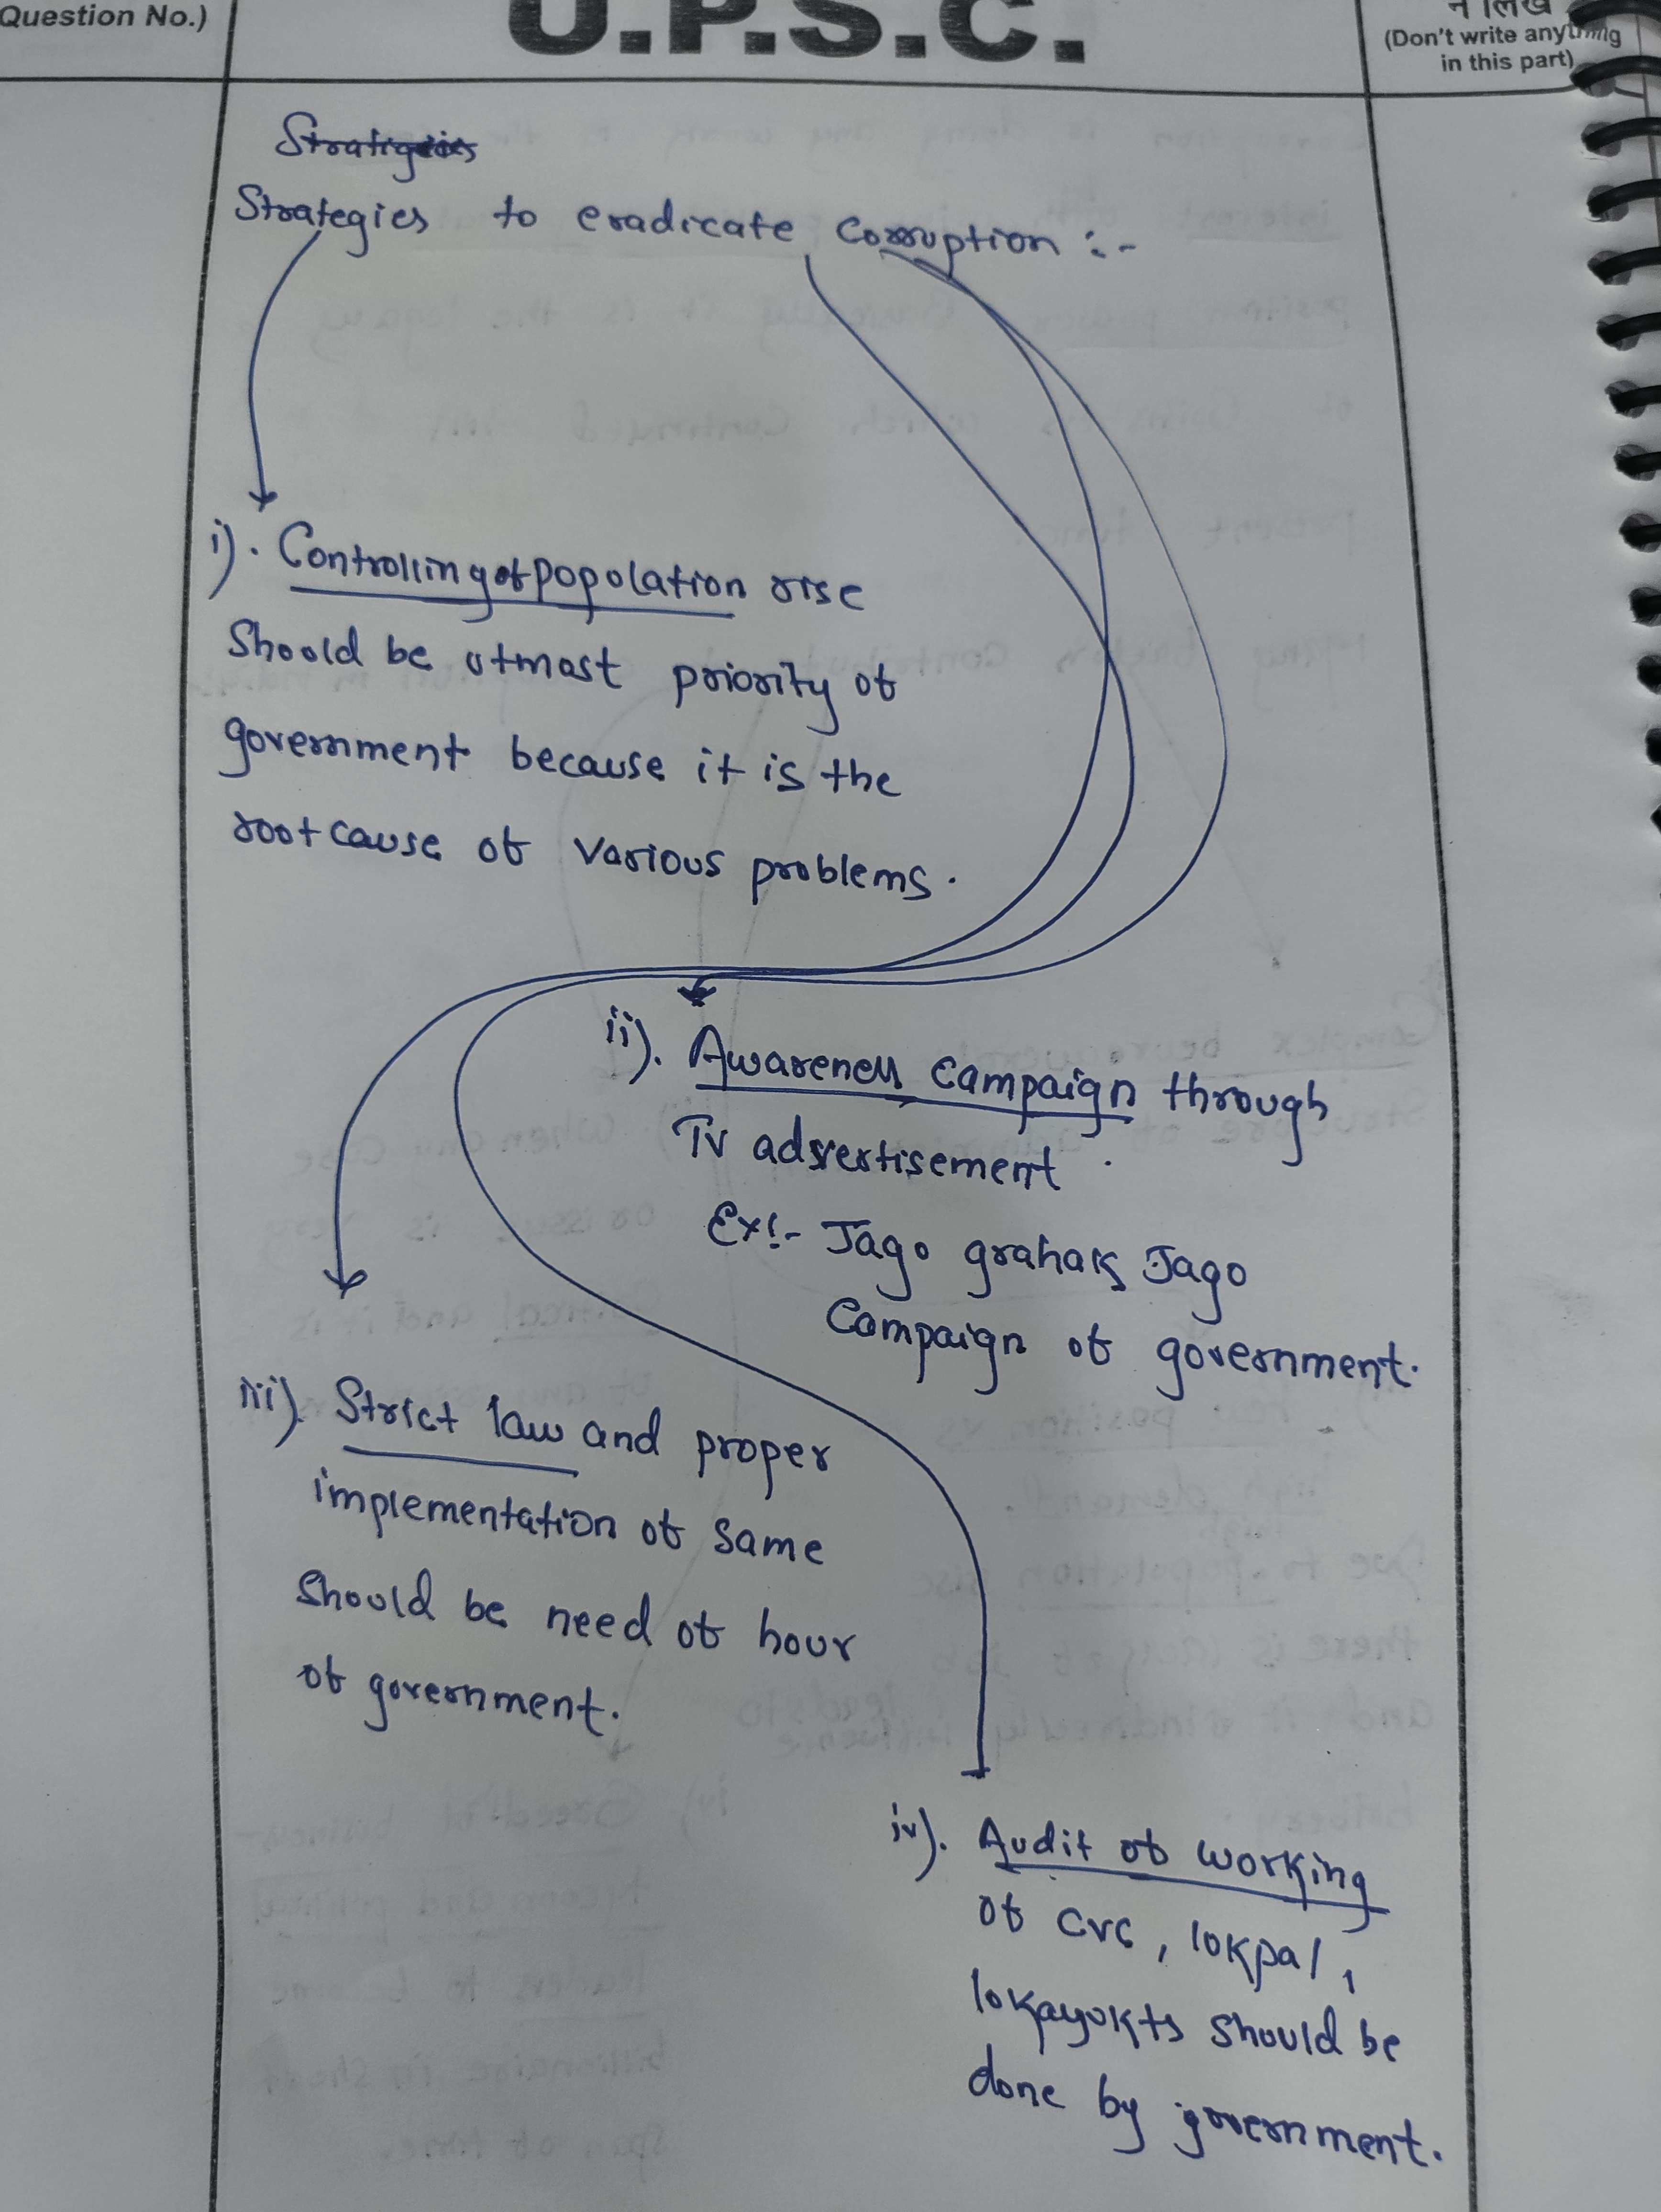 Question No.)
U.P.S.C.
न लिखें
(Don't write anything
in this part)
Strategies to eradicate Corruption :-
i). Controlling of popolation rise
Should be utmost priority of
government because it is the
root cause of various problems.
ii). Awareness Campaign through
TV advertisement.
Ex:- Jago grahak Jago
Campaign of government.
iii). Strict law and proper
implementation of same
should be need of hour
of government.
iv). Audit of working
of CVC, lokpal,
lokayukts should be
done by government.